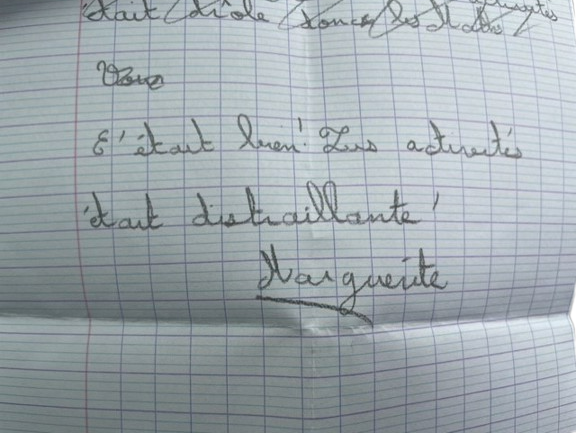 était drôle
C'était bien! Les activités
était distraillante!
Marguerite